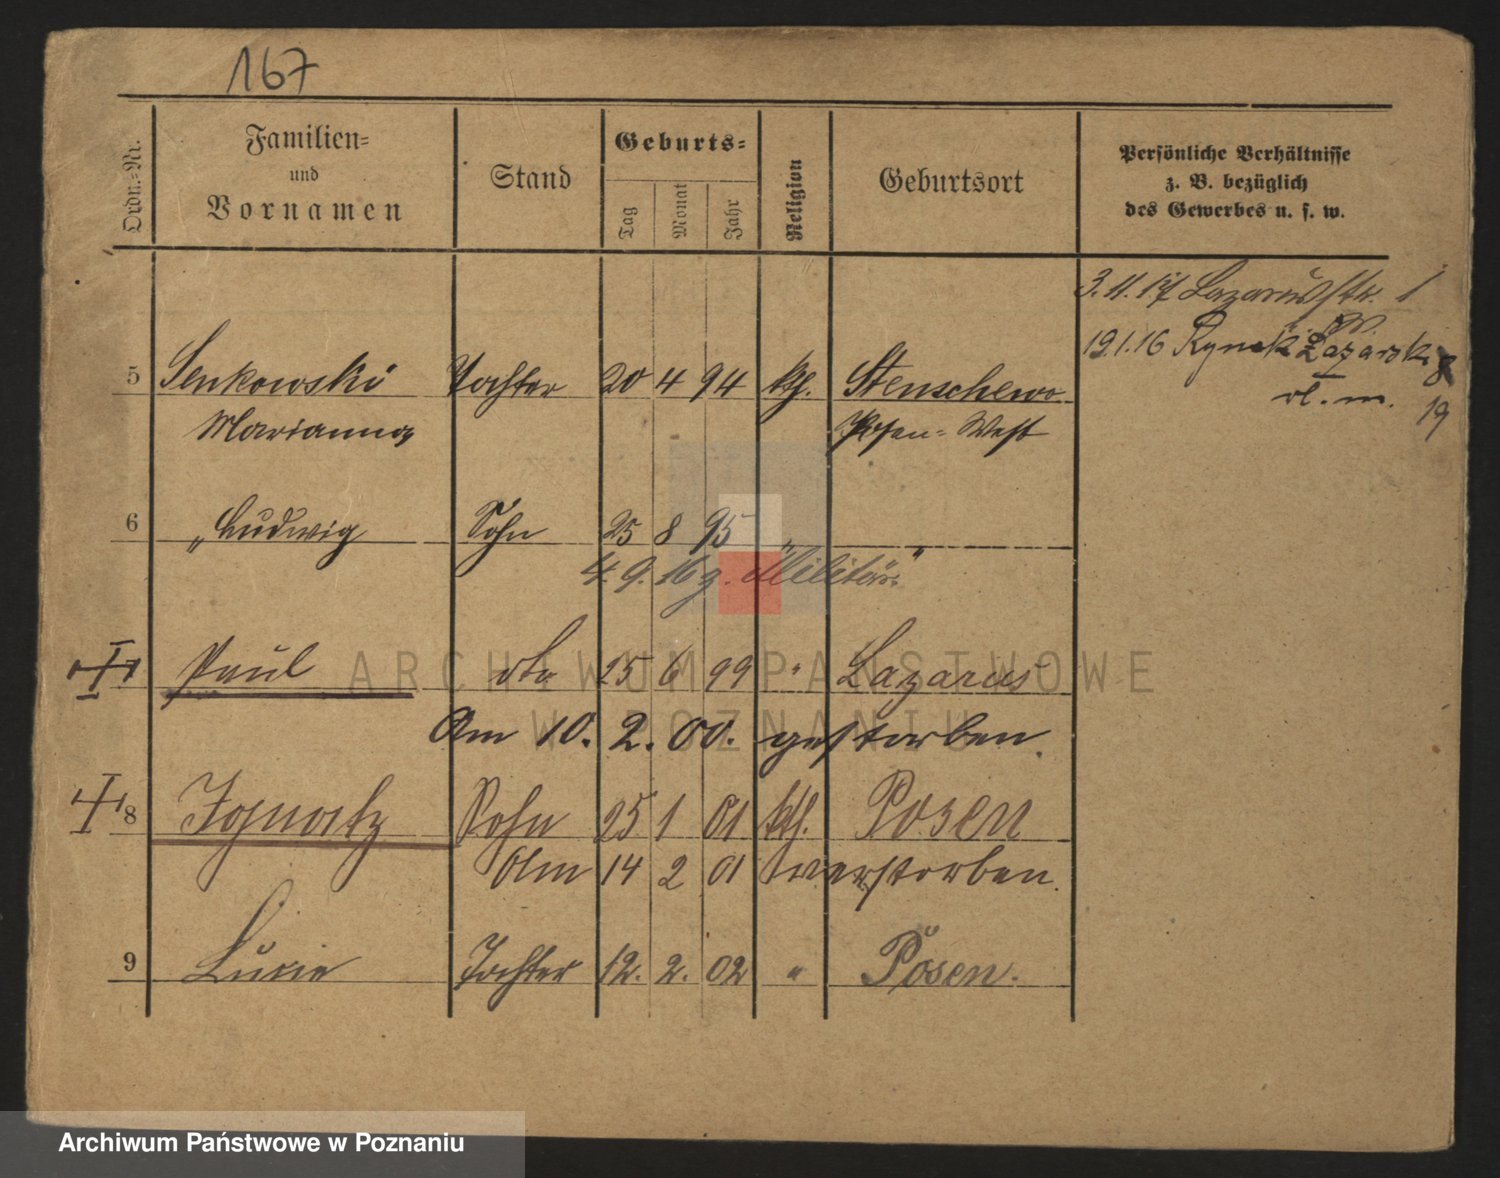 167
Ordn.-Nr.
Familien-
und
Vornamen
Stand
Geburts-
Tag
Monat
Jahr
Religion
Geburtsort
Persönliche Verhältnisse
z. B. bezüglich
des Gewerbes u. s. w.
3.11.17 Lazarusstr. 1
19.1.16 Rynek Łazarski 8
19
5 Senkowski Tochter 20 4 94 kth. Stenschewo
Marianna Posen-West
6 " Ludwig Sohn 25 8 95 " "
4. 9. 16 z. Militär
Paul dto 25 6 99 " Lazarus
Am 10. 2. 00. gestorben.
8 Ignatz Sohn 25 1 01 kth. Posen
Am 14 2 01 verstorben.
9 Luzie Tochter 12. 2. 02 " Posen.
ARCHIWUM PAŃSTWOWE
W POZNANIU
Archiwum Państwowe w Poznaniu